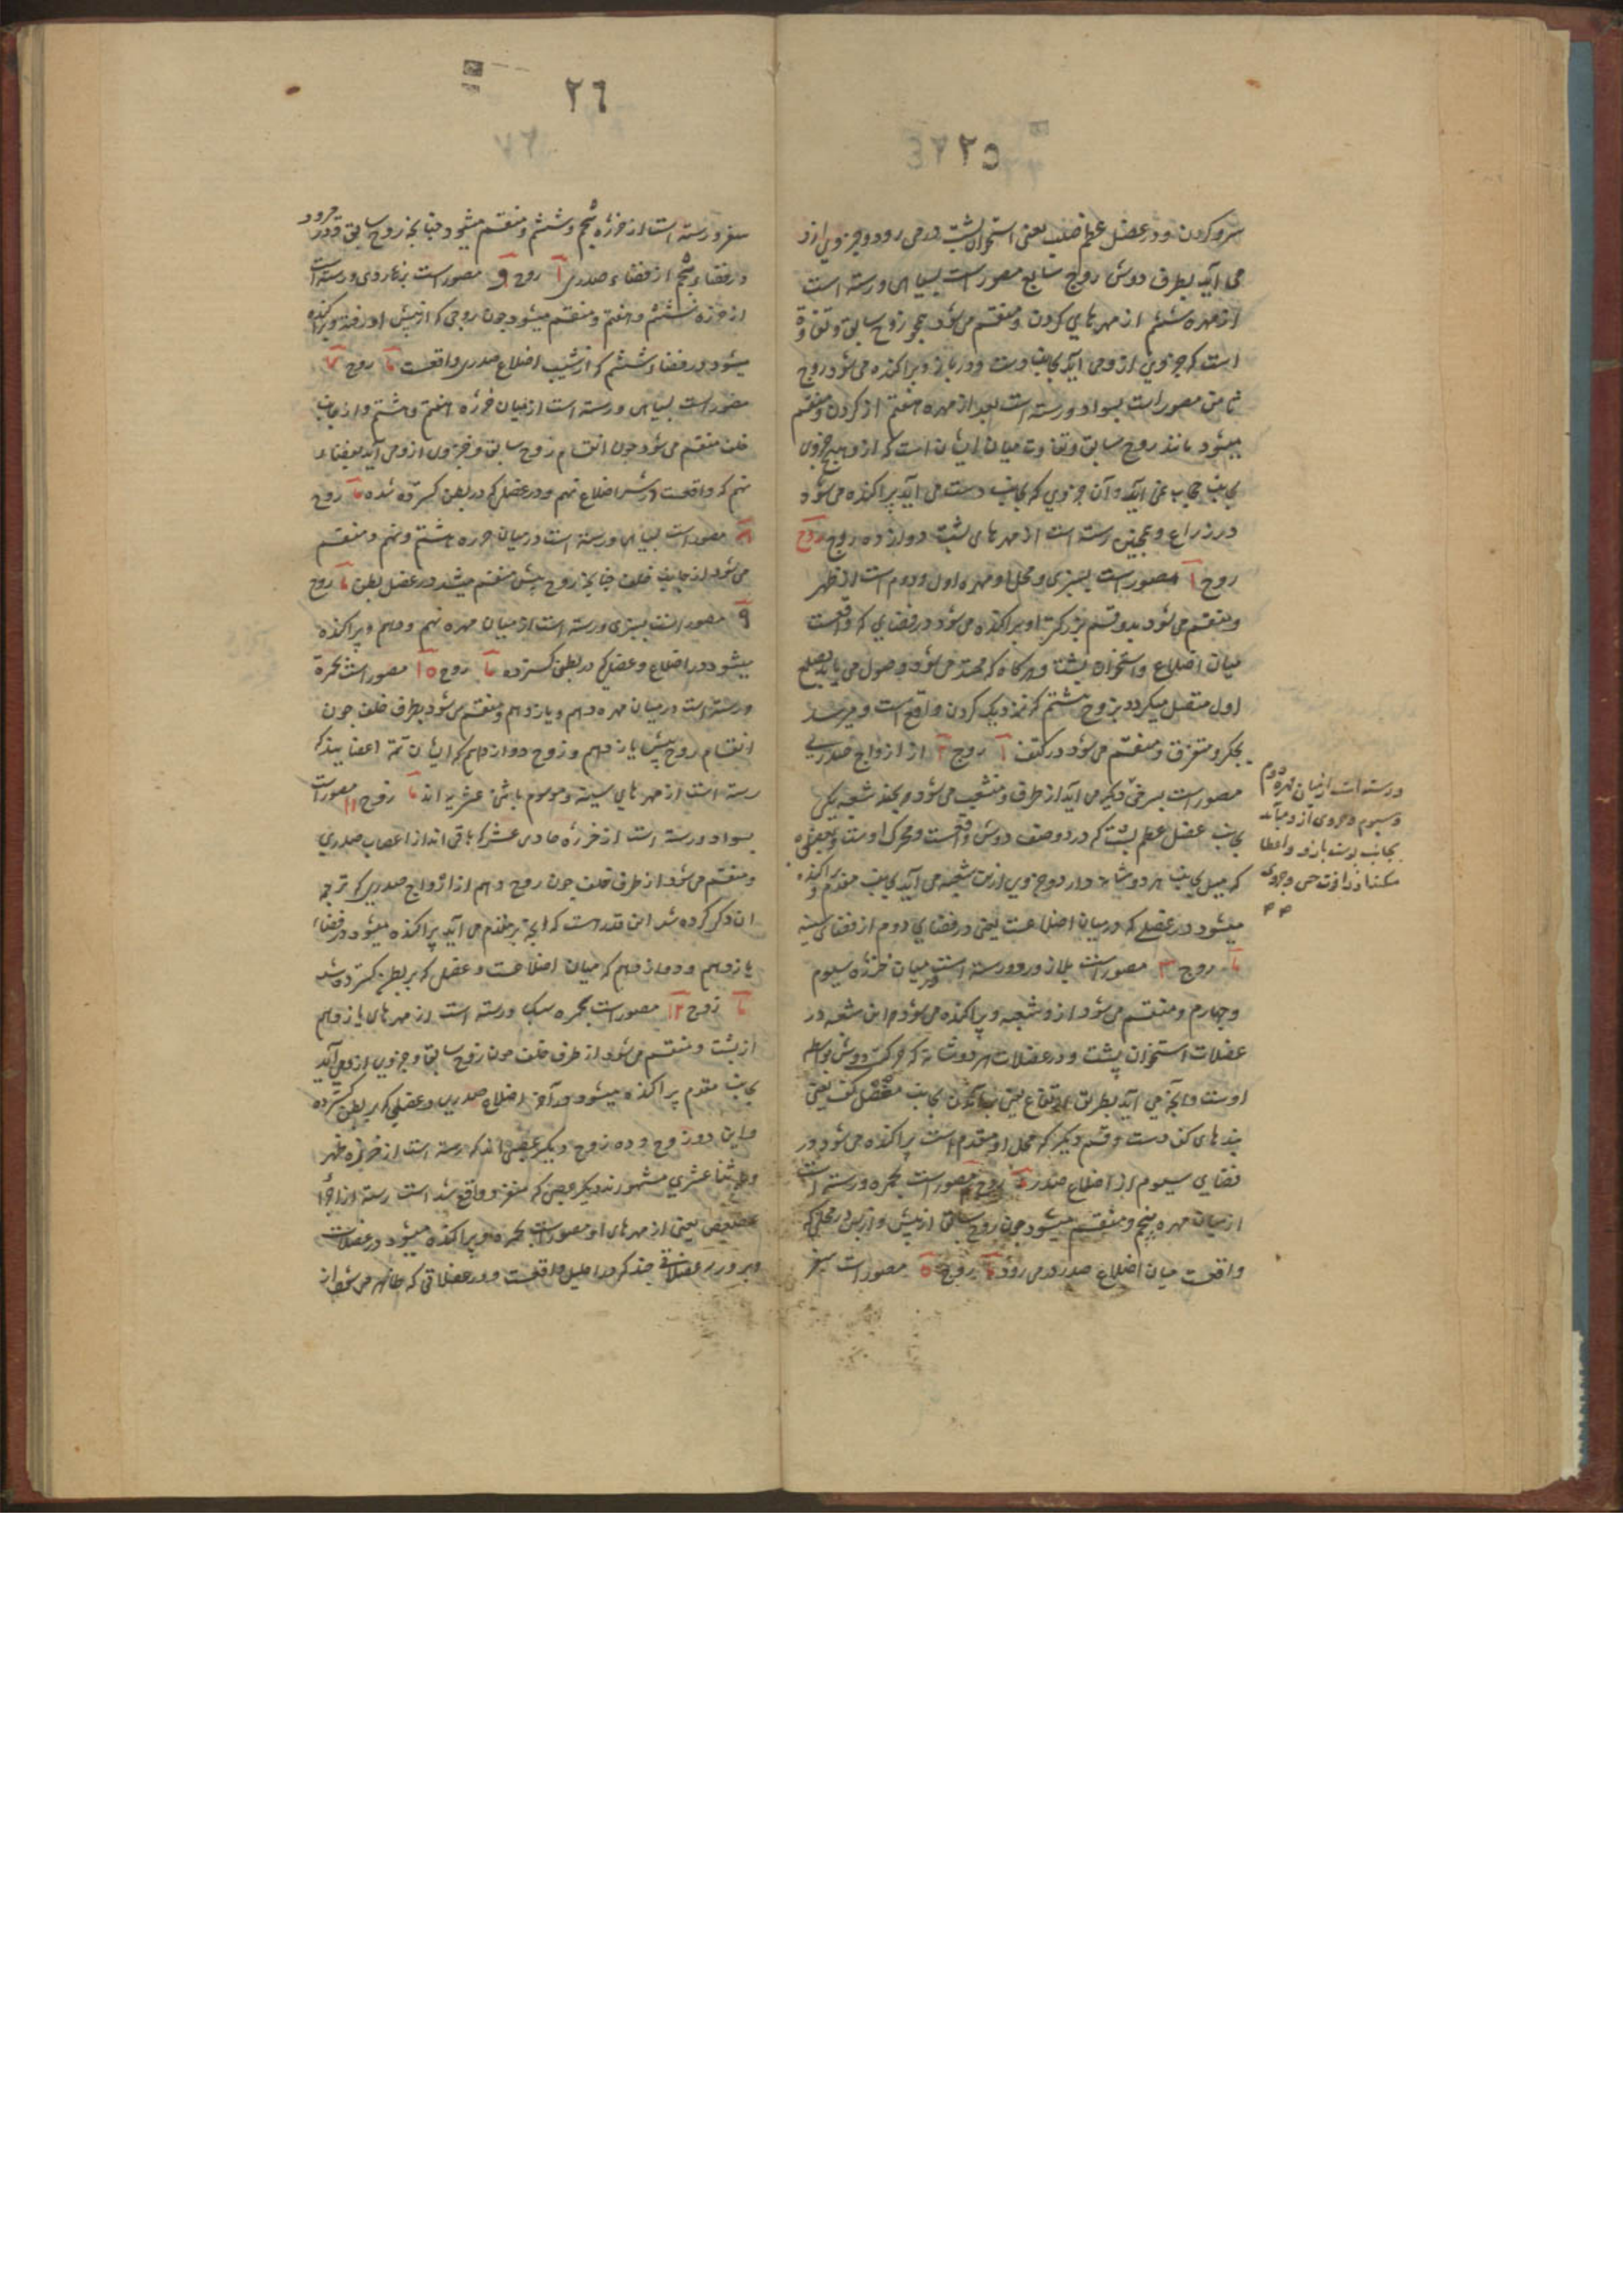 ٢٥
سر و کردن و در عضل عظم صلب یعنی استخوان پشت در می رود و جزوی ازو
می آید بطرف دوش زوج سابع مصور است بسیاهی و رسته است
از مهره ششم از مهرهای کردن و منقسم می شود چو زوج سابق و تفاوة
است که جزوی ازو می آید بجانب دست و در بازو پراکنده می شود زوج
ثامن مصور است بسواد و رسته است بعد از مهره هفتم از کردن و منقسم
میشود مانند زوج سابق و تفاوت میان ایشان است که ازو هیچ جزوی
بجانب حجاب نمی آید و آن جزوی که بجانب دست می آید پراکنده می شود
در ذراع و همچنین رسته است از مهرهای پشت دوازده زوج زوج
زوج ١ مصور است بسبزی و محل او مهره اول و دوم است از ظهر
و منقسم می شود بدو قسم بزرکتر او پراکنده می شود در فضای که واقعست
میان اضلاع و استخوان پشت و هرکاه که ممتد می شود و وصول می یابد بضلع
اول متصل میکردد بزوج هشتم که نزدیک کردن واقع است و میرسد
بجکر و متفرق و منقسم می شود در کتف زوج ٢ از ازواج صدری
مصور است بسرخی دیکر می آید از طرف و منشعب می شود بچند شعبه یکی
بجانب عضل عظم پشت که در دو صنف دوش واقعست و محرک اوست و بعضی
که میل بجانب هر دو شانه دارد و جزوی ازین شعبه می آید بجانب مقدم و پراکنده
میشود در عضلی که در میان اضلاعست یعنی در فضای دوم از فضای سینه
زوج ٣ مصور است بلازورد و رسته است در میان خرزه سیوم
و چهارم و منقسم می شود ازو شعبه و پراکنده می شود این شعبه در
عضلات استخوان پشت و در عضلات هر دو شانه که حرکت دوش بواسطه
اوست و آنچه می آید بطریق ارتفاع یعنی بجانب مفصل کتف یعنی
بندهای کتف دست و قسم دیکر که محل او مقدم است پراکنده می شود در
فضای سیوم از اضلاع صدر زوج ٤ مصور است بحمره و رسته است
از میان مهره پنجم و منقسم میشود چون زوج سابق از پیش و از پس در محلی که
واقعست میان اضلاع صدر در می رود زوج ٥ مصور است بسبز
و رسته است از میان مهره دوم
و سیوم و جزوی ازو میآید
بجانب پوست بازو و اعطا
میکند او را قوت حس و جزوی
٢٦
سفر و رسته است از خرزه پنجم و ششم و منقسم میشود چنانچه زوج سابق و در
در فضاء پنجم از فضاء صدری زوج ٦ مصور است بزنکاری و رسته است
از خرزه ششم و هفتم و منقسم میشود چون زوجی که از پیش او رفته و پراکنده
میشود در فضاء ششم که از شیب اضلاع صدری واقعست زوج ٧
مصور است بسیاهی و رسته است از میان خرزه هفتم و هشتم و از جانب
خلف منقسم می شود چون انقسام زوج سابق و جزوی ازو می آید بفضاء
نهم که واقعست در سر اضلاع نهم و در عضلی که در بطن کسترده شده زوج
٨ مصور است بسیاهی و رسته است در میان خرزه هشتم و نهم و منقسم
می شود از جانب خلف چنانچه زوج پیش منقسم میشد در عضل بطن زوج
٩ مصور است بسبزی و رسته است از میان مهره نهم و دهم و پراکنده
میشود در اضلاع و عضلی که در بطن کسترده زوج ١٥ مصور است بحمرة
و رسته است در میان مهره دهم و یازدهم و منقسم می شود بطرف خلف چون
انقسام زوج پیش یازدهم و زوج دوازدهم که ایشان تمة اعضا بیند که
رسته است از مهرهای سینه و موسوم باثنی عشریه اند زوج ١١ مصور است
بسواد و رسته است از خرزه حادی عشر که باقی اند از اعصاب صدری
و منقسم می شود از طرف خلف چون زوج دهم از ازواج صدری که ترجمه
ان ذکر کرده شد این قدر است که آنچه بر مقدم می آید پراکنده میشود در فضاء
یازدهم و دوازدهم که میان اضلاعست و عضل که بر بطن کسترده شد
زوج ١٢ مصور است بحمره سبک و رسته است از مهرهای یازدهم
از پشت و منقسم می شود از طرف خلف چون زوج سابق و جزوی ازو می آید
بجانب مقدم پراکنده میشود در آخر اضلاع صدری و عضلی که بر بطن کسترده
و این دو زوج و ده زوج دیکر عصبی اند که رسته است از خرزه ظهر
و باثنا عشری مشهورند دیکر عصبی که منفرد واقع شد است رسته از اجزا
عصعص یعنی از مهرهای او مصور است بحمره و پراکنده میشود در عضلات
و بر و در عضلاتی چند که در احلیل واقعست و در عضلاتی که ظاهر می شود از